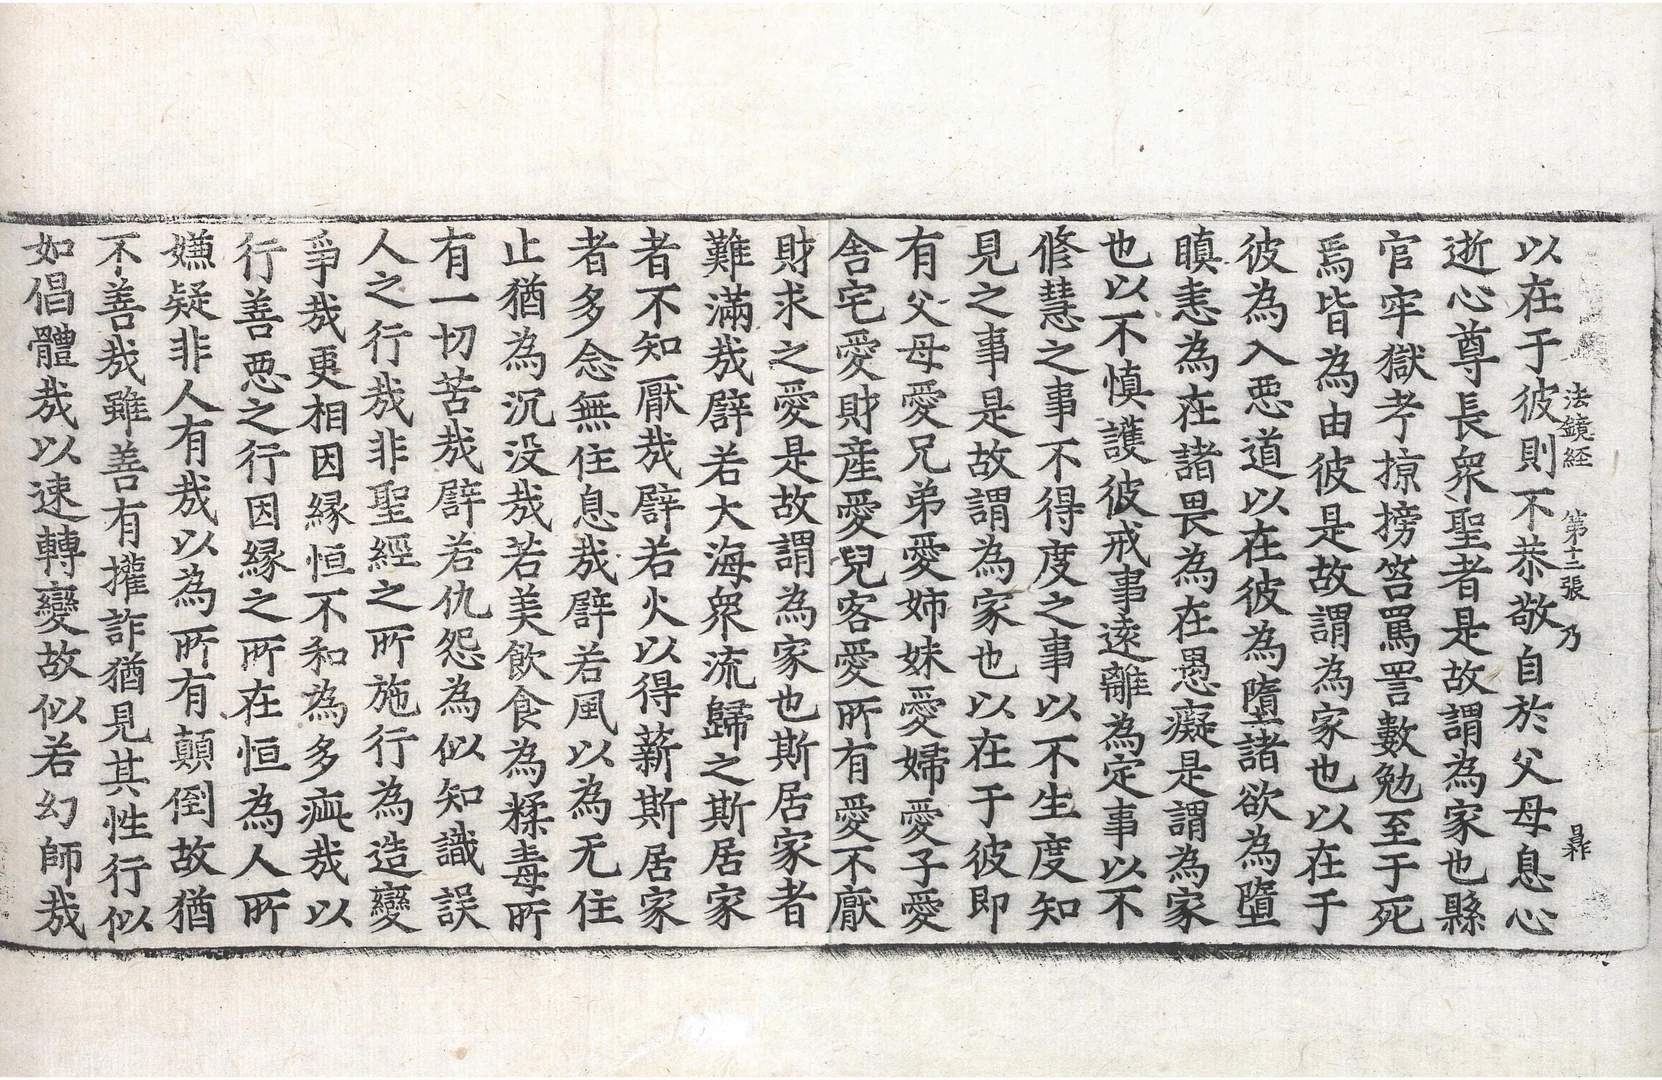 法鏡経 第十二張 乃
以在于彼則不恭敬自於父母息心
逝心尊長衆聖者是故謂為家也縣
官牢獄考掠搒笞罵詈數勉至于死
焉皆為由彼是故謂為家也以在于
彼為入惡道以在彼為墮諸欲為墮
瞋恚為在諸畏為在愚癡是謂為家
也以不慎護彼戒事遠離為定事以不
修慧之事不得度之事以不生度知
見之事是故謂為家也以在于彼即
有父母愛兄弟愛姊妹愛婦愛子愛
舍宅愛財産愛兒客愛所有愛不厭
財求之愛是故謂為家也斯居家者
難滿㢤譬若大海衆流歸之斯居家
者不知厭㢤譬若火以得薪斯居家
者多念無住息㢤譬若風以為无住
止猶為沉没㢤若美飲食為糅毒所
有一切苦㢤譬若仇怨為似知識誤
人之行㢤非聖經之所施行為造變
爭㢤更相因緣恒不和為多疵㢤以
行善惡之行因緣之所在恒為人所
嫌疑非人有㢤以為所有顛倒故猶
不善㢤雖善有攉詐猶見其性行似
如倡體㢤以速轉變故似若幻師㢤